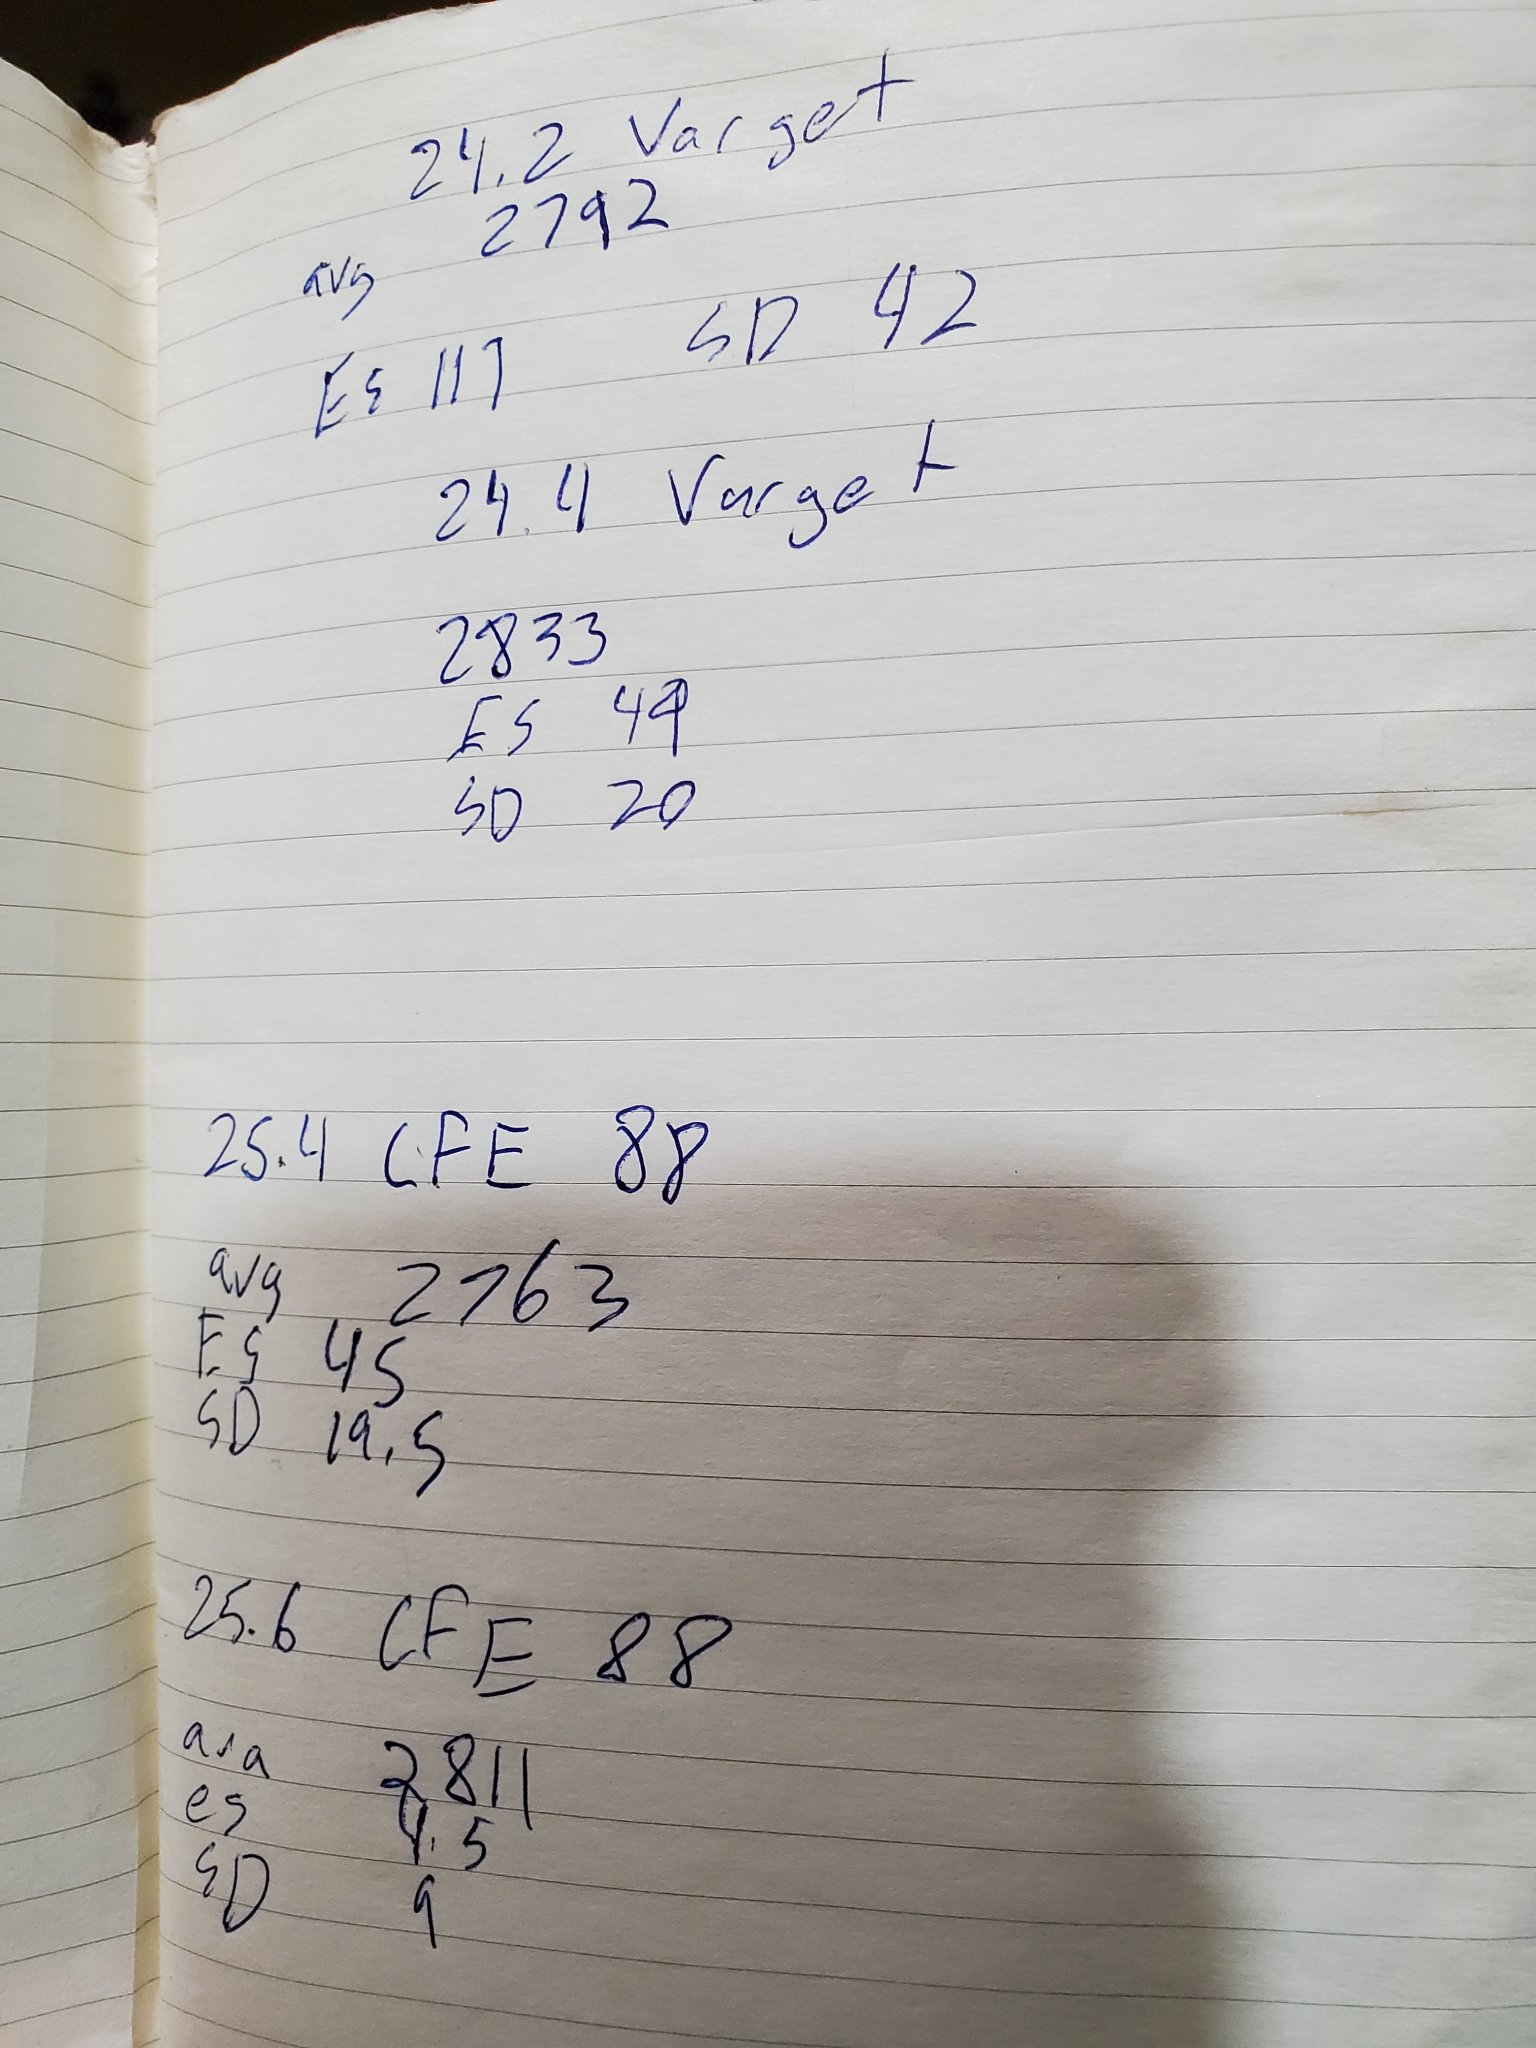 24.2 Varget
2792
avg
ES 117 SD 42
24.4 Varget
2833
ES 49
SD 20
25.4 CFE 88
avg 2763
ES 45
SD 19.5
25.6 CFE 88
2811
es 4.5
SD 9